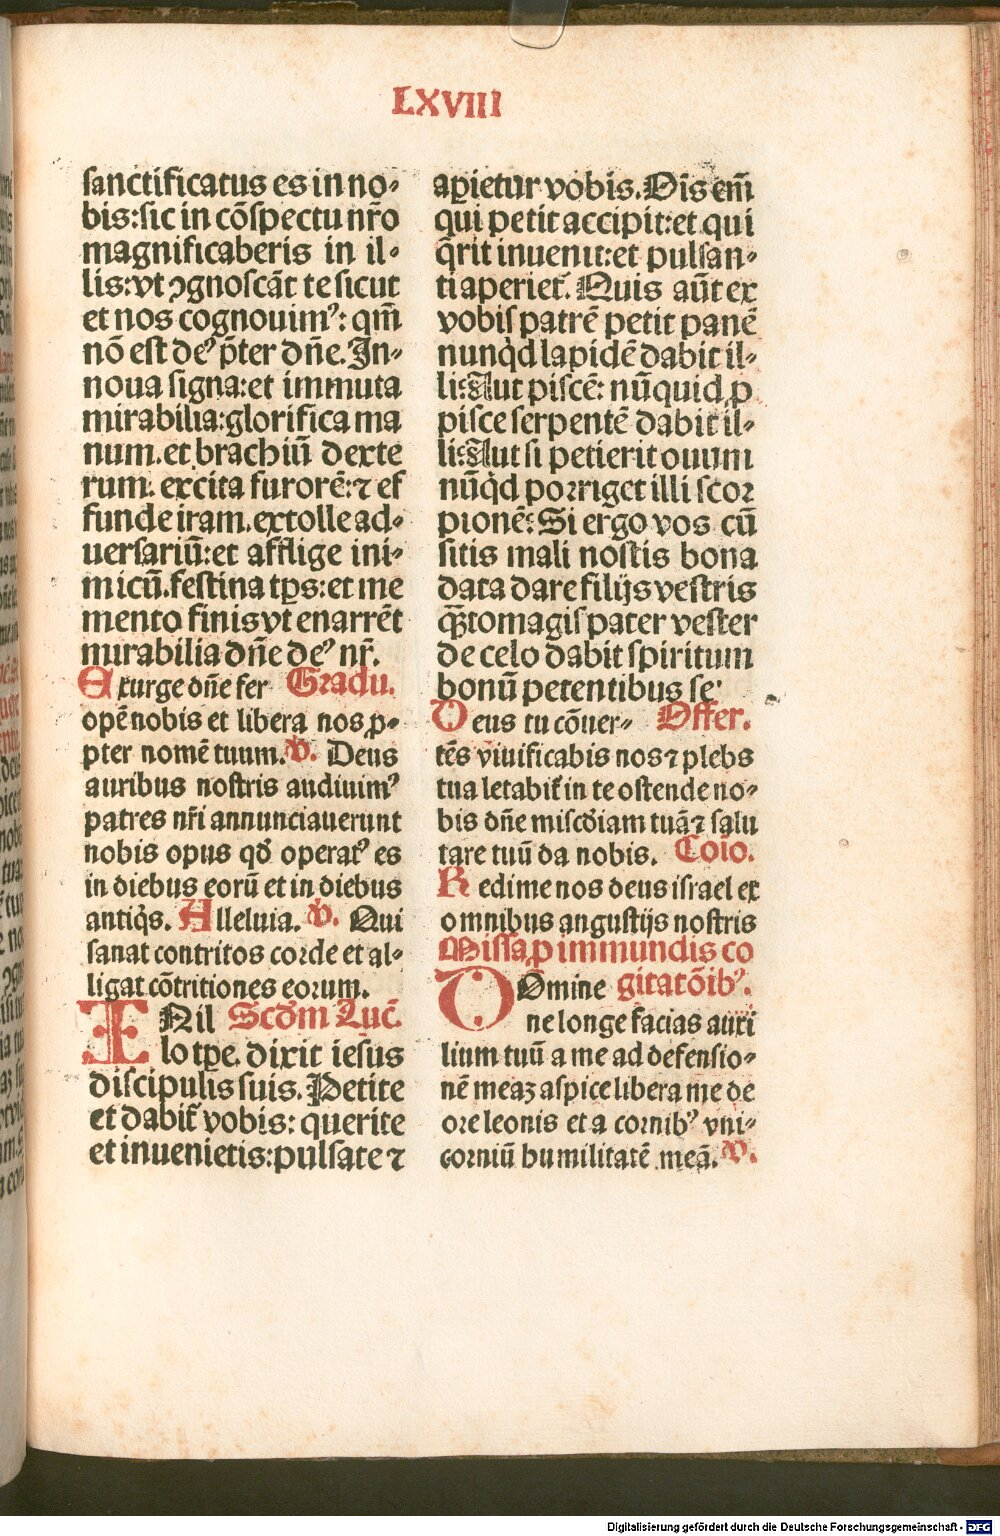 LXVIII
sanctificatus es in no⸗
bis:sic in cōspectu nr̄o
magnificaberis in il⸗
lis:vt ꝯgnoscāt te sicut
et nos cognouimꝰ: qm̄
nō est deꝰ p̄ter dn̄e. In⸗
noua signa:et immuta
mirabilia:glorifica ma
num.et brachiū dexte
rum: excita furorē:⁊ ef
funde iram.extolle ad⸗
uersariū:et afflige ini⸗
micū.festina tp̄s:et me
mento finis vt enarrēt
mirabilia dn̄e deꝰ nr̄.
Exurge dn̄e fer Gradu.
opē nobis et libera nos ꝓ⸗
pter nomē tuum. V. Deus
auribus nostris audiuimꝰ
patres nr̄i annunciauerunt
nobis opus qd̄ operatꝰ es
in diebus eorū et in diebus
antiq̇s. Alleluia. V. Qui
sanat contritos corde et al⸗
ligat cōtritiones eorum.
IN il Scd̄m Luc̄.
lo tp̄e. dixit iesus
discipulis suis. Petite
et dabit̄ vobis: querite
et inuenietis:pulsate ⁊
aperietur vobis. Om̄s em̄
qui petit accipit:et qui
q̄rit inuenit:et pulsan⸗
ti aperiet̄. Quis aūt ex
vobis patrē petit panē
nunq̇d lapidē dabit il⸗
li: Aut piscē: nūquid ꝓ
pisce serpentē dabit il⸗
li: Aut si petierit ouum
nūq̇d porriget illi scor
pionē: Si ergo vos cū
sitis mali nostis bona
data dare filijs vestris
q̄̄tomagis pater vester
de celo dabit spiritum
bonū petentibus se.
Deus tu cōuer⸗ Offer.
tēs viuificabis nos ⁊ plebs
tua letabit̄ in te ostende no⸗
bis dn̄e miscd̄iam tuā ⁊ salu
tare tuū da nobis. Cōio.
Redime nos deus israel ex
omnibus angustijs nostris
Missa ꝓ immundis co
DOmine gitatōibꝰ.
ne longe facias auxi
lium tuū a me ad defensio⸗
nē meaꝫ aspice libera me de
ore leonis et a cornibꝰ vni⸗
corniū humilitatē meā. V.
Digitalisierung gefördert durch die Deutsche Forschungsgemeinschaft - DFG